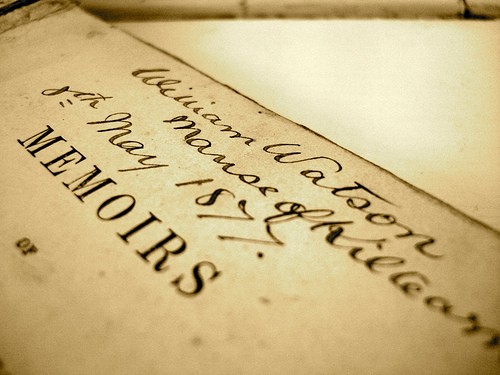 William Watson
Manse of Kiltearn
8th May 1877.
MEMOIRS
OF